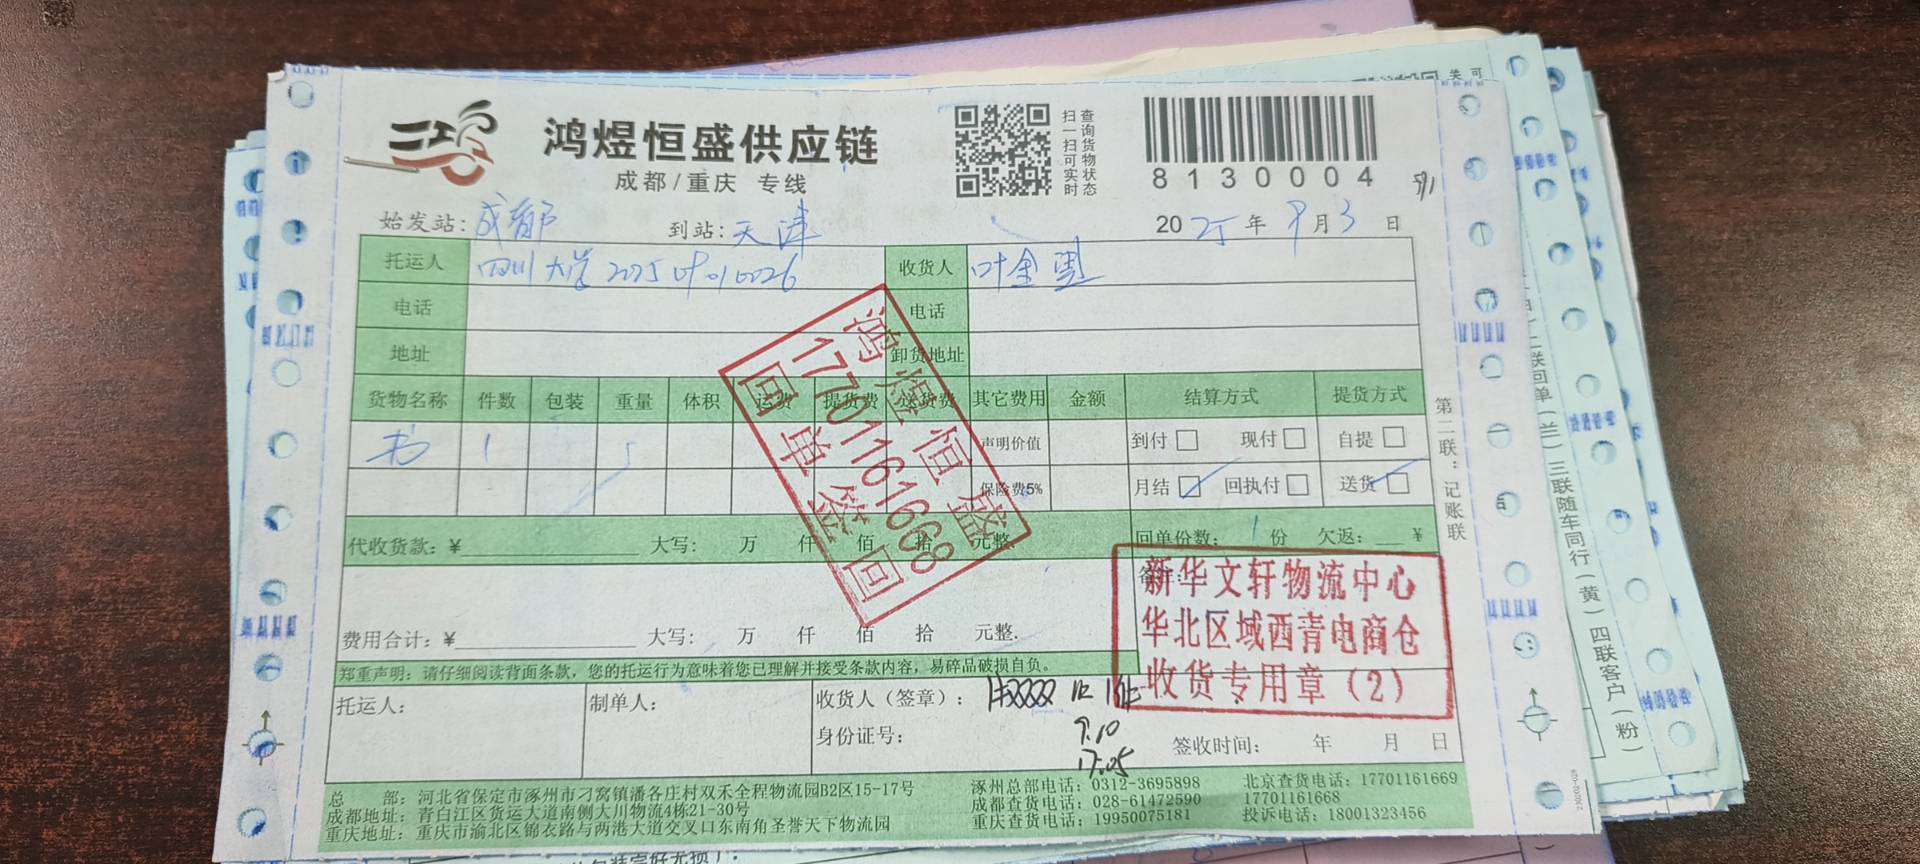 鸿煜恒盛供应链
成都/重庆 专线
扫一扫可实时
查询货物状态
8130004
始发站：成都 到站：天津 2025年9月3日
托运人 四川大学202509010026 收货人
电话 电话
地址 卸货地址
货物名称 件数 包装 重量 体积 运费 提货费 送货费 其它费用 金额 结算方式 提货方式
书 1 5 声明价值 到付□ 现付□ 自提□
保险费5% 月结□ 回执付□ 送货□
代收货款：¥ 大写： 万 仟 佰 拾 元整 回单份数：1份 欠返： ¥
鸿煜恒盛
17701161668
回单签回
新华文轩物流中心
华北区域西青电商仓
收货专用章（2）
费用合计：¥ 大写： 万 仟 佰 拾 元整.
郑重声明：请仔细阅读背面条款，您的托运行为意味着您已理解并接受条款内容，易碎品破损自负。
托运人： 制单人： 收货人（签章）：
身份证号： 9.10
17:05
签收时间： 年 月 日
总 部：河北省保定市涿州市刁窝镇潘各庄村双禾全程物流园B2区15-17号
成都地址：青白江区货运大道南侧大川物流4栋21-30号
重庆地址：重庆市渝北区锦衣路与两港大道交叉口东南角圣誉天下物流园
涿州总部电话：0312-3695898 北京查货电话：17701161669
成都查货电话：028-61472590 17701161668
重庆查货电话：19950075181 投诉电话：18001323456
第二联：记账联
二联回单（兰）三联随车同行（黄）四联客户（粉）